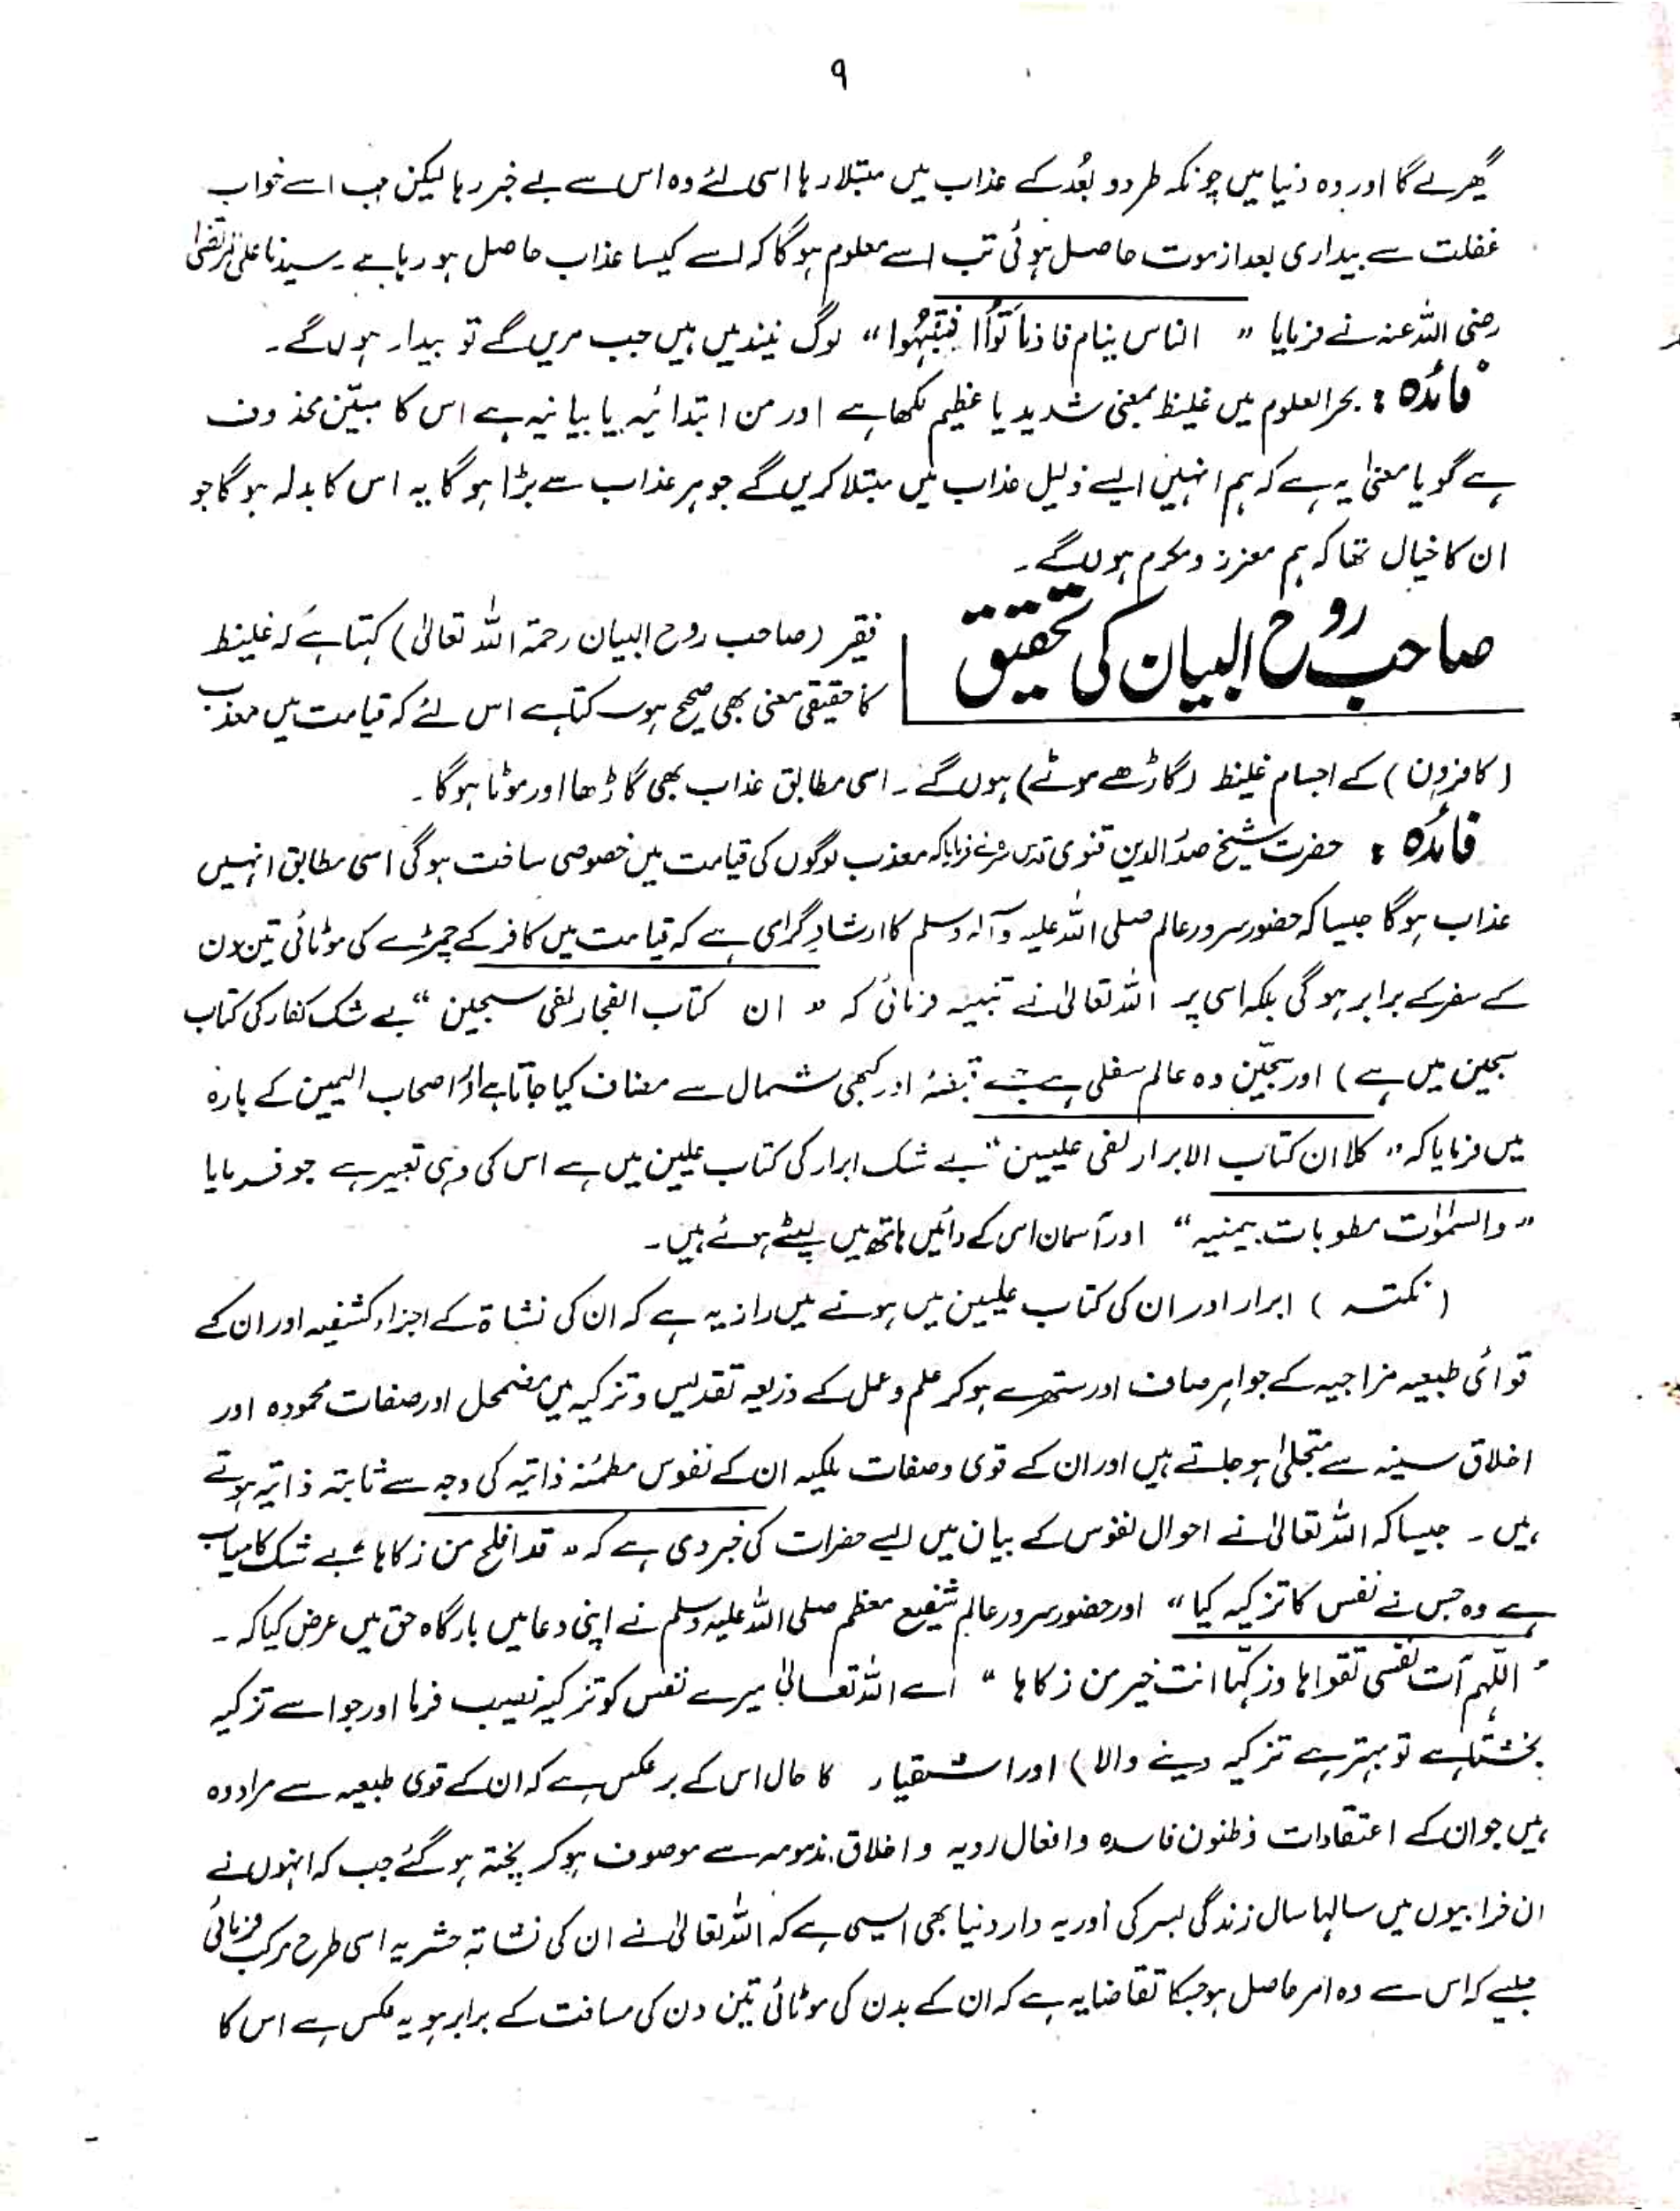 ۹
گھرے گا اور وہ دنیا میں چونکہ طرد و بُعد کے عذاب میں مبتلا رہا اسی لئے وہ اس سے بے خبر رہا لیکن جب اسے خواب
غفلت سے بیداری بعد از موت حاصل ہوئی تب اسے معلوم ہوگا کہ اسے کیسا عذاب حاصل ہو رہا ہے ۔ سیدنا علی المرتضیٰ
رضی اللہ عنہ نے فرمایا " الناس ینام فاذا ماتوا فتبہوا " لوگ نیند میں ہیں جب مریں گے تو بیدار ہوں گے ۔
فائدہ : بحر العلوم میں غلیظ بمعنی شدید یا عظیم لکھا ہے اور من ابتدائیہ یا بیانیہ ہے اس کا مبیّن محذوف
ہے گویا معنیٰ یہ ہے کہ ہم انہیں ایسے ذلیل عذاب میں مبتلا کریں گے جو ہر عذاب سے بڑا ہوگا یہ اس کا بدلہ ہوگا جو
ان کا خیال تھا کہ ہم معزز و مکرم ہوں گے ۔
صاحب روح البیان کی تحقیق
فقیر (صاحب روح البیان رحمۃ اللہ تعالیٰ) کہتا ہے کہ غلیظ
کا حقیقی معنی بھی صحیح ہو سکتا ہے اس لئے کہ قیامت میں معذب
(کافروں) کے اجسام غلیظ (گاڑھے موٹے) ہوں گے ۔ اسی مطابق عذاب بھی گاڑھا اور موٹا ہوگا ۔
فائدہ : حضرت شیخ صدر الدین قنوی قدس سرہ نے فرمایا کہ معذب لوگوں کی قیامت میں خصوصی ساخت ہوگی اسی مطابق انہیں
عذاب ہوگا جیسا کہ حضور سرور عالم صلی اللہ علیہ وآلہ وسلم کا ارشادِ گرامی ہے کہ قیامت میں کافر کے چمڑے کی موٹائی تین دن
کے سفر کے برابر ہوگی بلکہ اسی پر اللہ تعالیٰ نے تنبیہ فرمائی کہ " ان کتاب الفجار لفی سجین " بے شک کفار کی کتاب
سجین میں ہے ) اور سجّین وہ عالم سفلی ہے جسے قبضہ اور کبھی شمال سے مضاف کیا جاتا ہے اور اصحاب الیمین کے بارہ
میں فرمایا کہ " کلا ان کتاب الابرار لفی علیین " بے شک ابرار کی کتاب علیین میں ہے اس کی وہی تعبیر ہے جو فرمایا
" والسمٰوٰت مطویات بیمینہ " اور آسمان اس کے دائیں ہاتھ میں لپیٹے ہوئے ہیں ۔
( نکتہ ) ابرار اور ان کی کتاب علیین میں ہونے میں راز یہ ہے کہ ان کی نشاۃ کے اجزاء کشفیہ اور ان کے
قوائی طبیعہ مزاجیہ کے جواہر صاف اور ستھرے ہو کر علم و عمل کے ذریعہ تقدیس و تزکیہ میں مضمحل اور صفات محمودہ اور
اخلاق سینہ سے متجلیٰ ہو جاتے ہیں اور ان کے قوی و صفات ملکیہ ان کے نفوس مطمئنہ ذاتیہ کی وجہ سے ثابتہ ذاتیہ ہوتے
ہیں ۔ جیسا کہ اللہ تعالیٰ نے احوال نفوس کے بیان میں ایسے حضرات کی خبر دی ہے کہ " قد افلح من زکاہا " بے شک کامیاب
ہے وہ جس نے نفس کا تزکیہ کیا " اور حضور سرور عالم شفیع معظم صلی اللہ علیہ وسلم نے اپنی دعا میں بارگاہ حق میں عرض کیا کہ ۔
" اللّٰہم آت نفسی تقواہا وزکہا انت خیر من زکاہا " اے اللہ تعالیٰ میرے نفس کو تزکیہ نصیب فرما اور جو اسے تزکیہ
بخشتا ہے تو بہتر ہے تزکیہ دینے والا ) اور اشقیاء کا حال اس کے برعکس ہے کہ ان کے قوی طبیعہ سے مراد وہ
ہیں جو ان کے اعتقادات و ظنون فاسدہ و افعال ردیہ و اخلاق مذمومہ سے موصوف ہو کر پختہ ہو گئے جب کہ انہوں نے
ان خرابیوں میں سالہا سال زندگی بسر کی اور یہ دار دنیا بھی ایسی ہے کہ اللہ تعالیٰ نے ان کی نشاتہ حشریہ اسی طرح مرکب فرمائی
جیسے کہ اس سے وہ امر حاصل ہو جسکا تقاضا یہ ہے کہ ان کے بدن کی موٹائی تین دن کی مسافت کے برابر ہو یہ عکس ہے اس کا